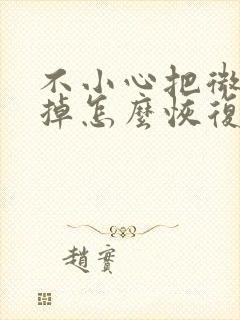 不小心把微
掉怎麼恢復
趙實